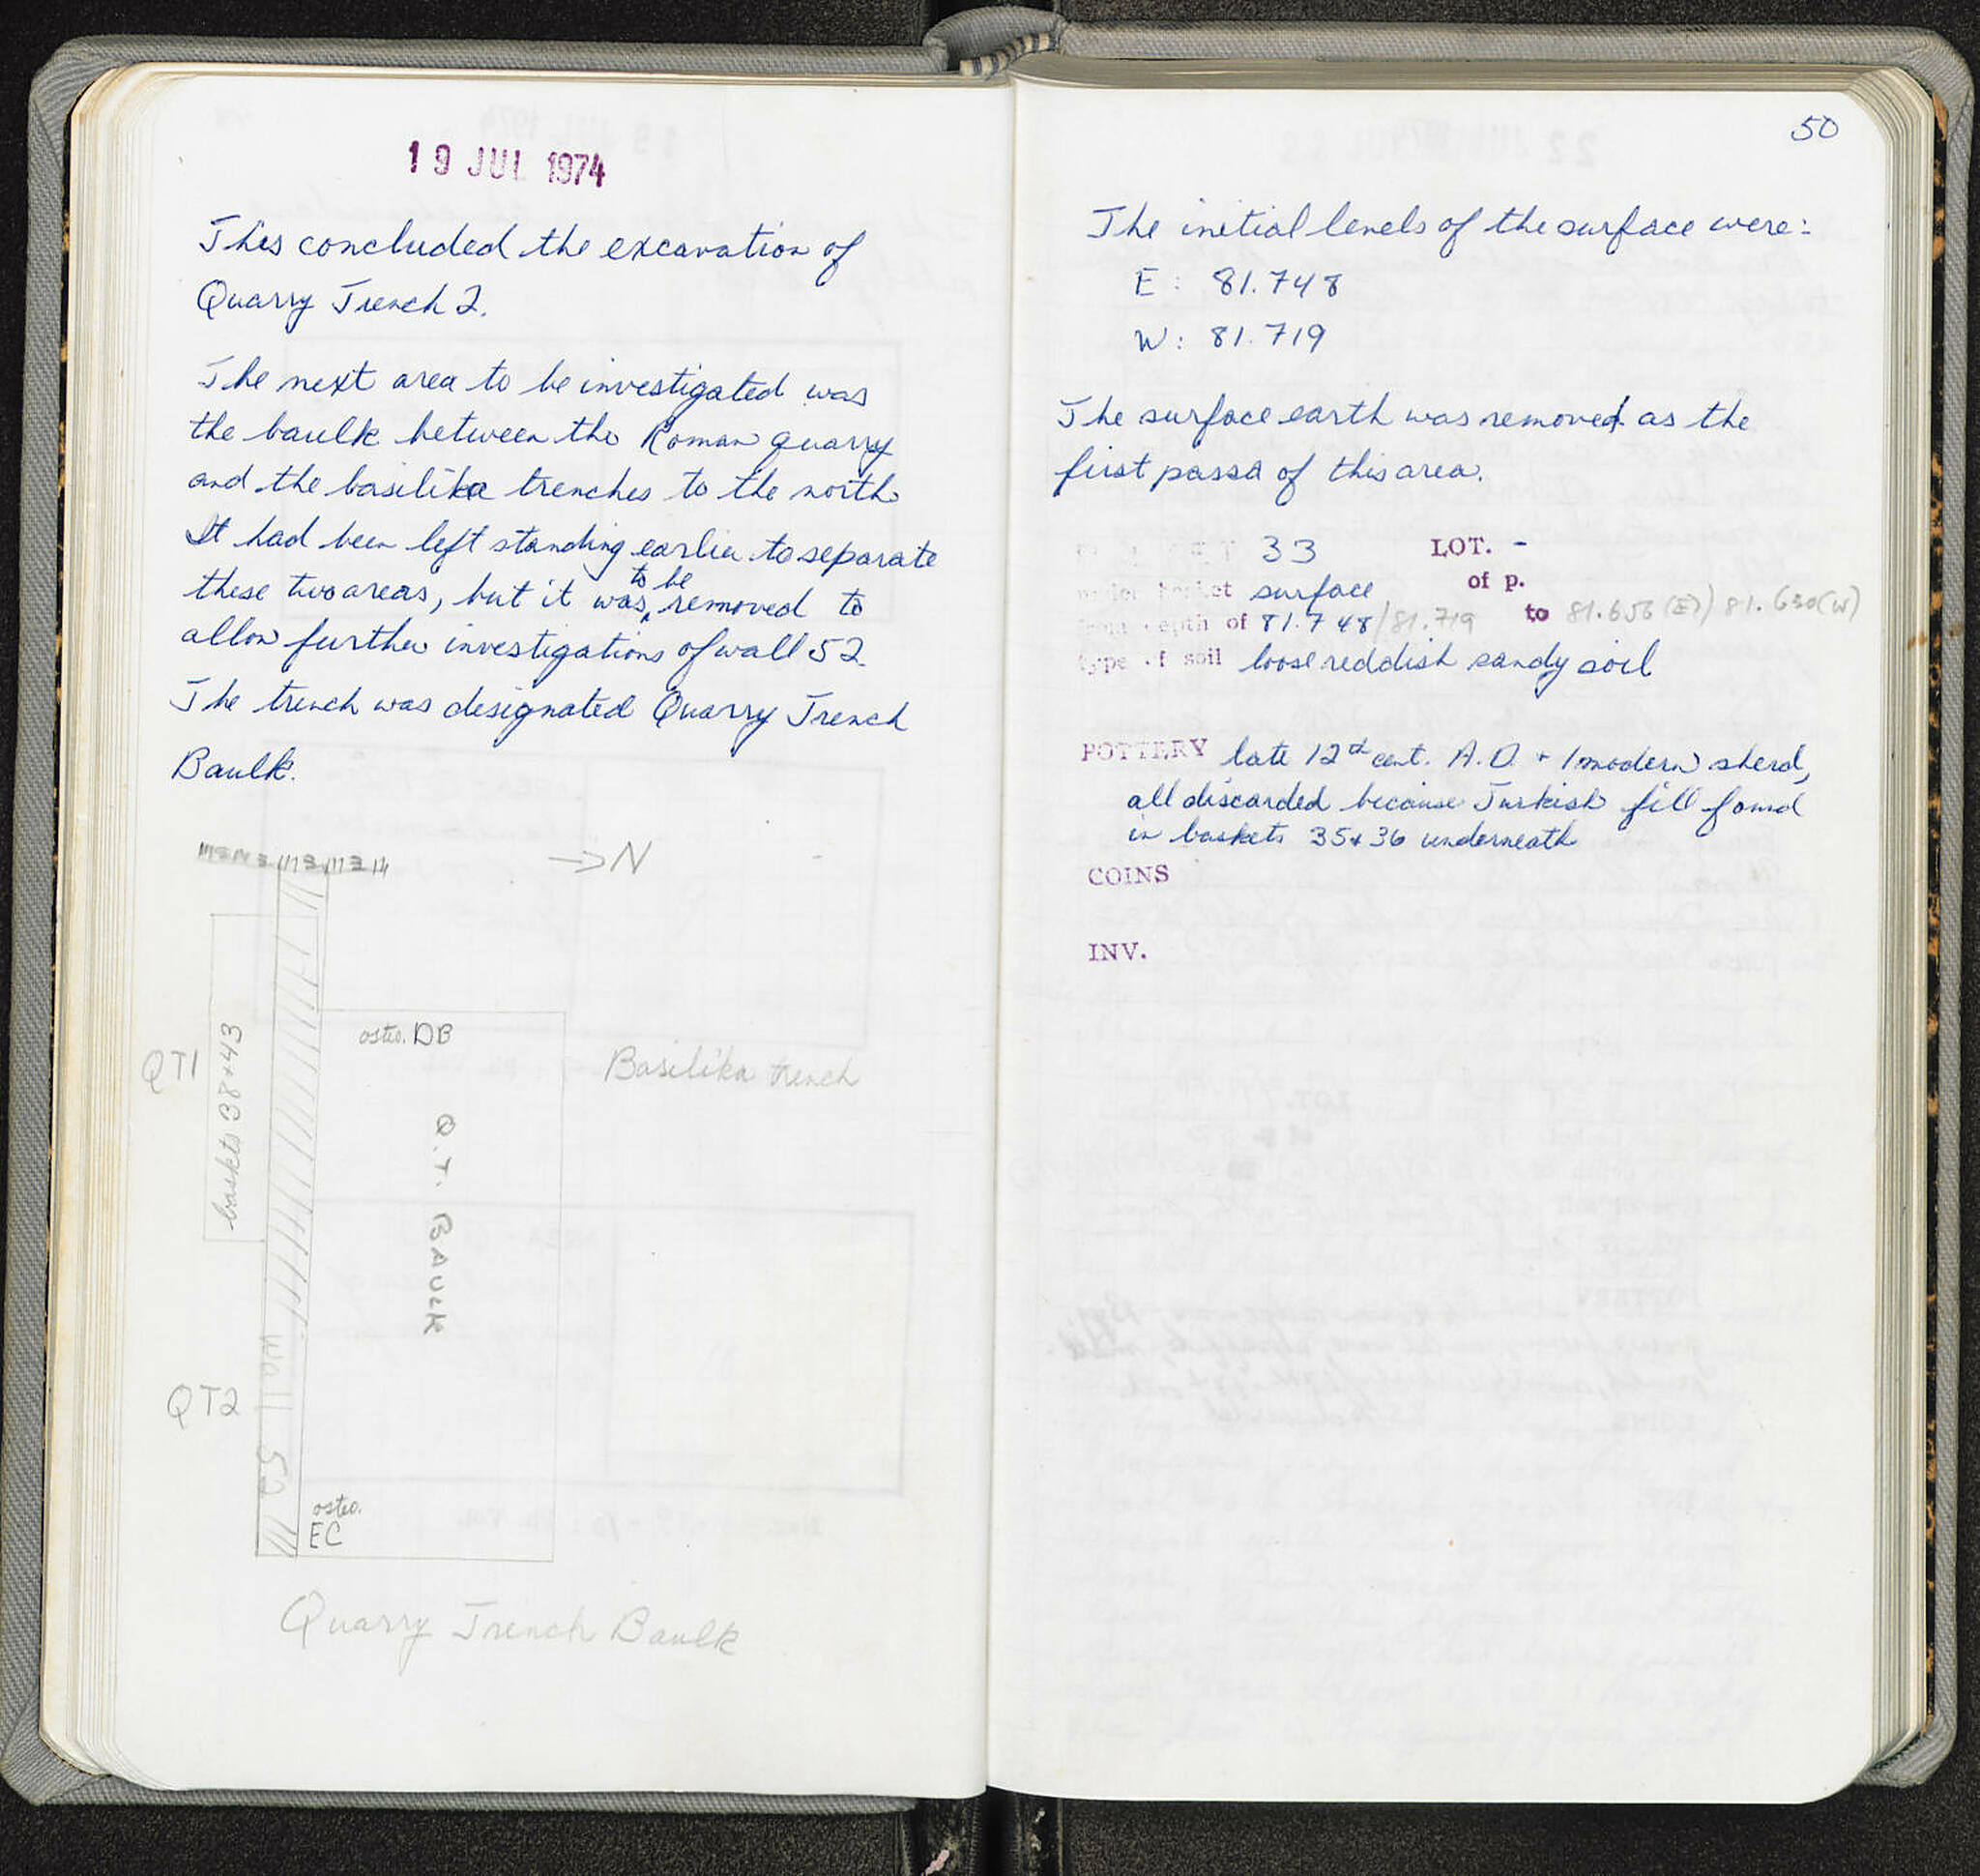 19 JUL 1974
This concluded the excavation of
Quarry Trench 2.
The next area to be investigated was
the baulk between the Roman quarry
and the basilika trenches to the north
It had been left standing earlier to separate
these two areas, but it was to be removed to
allow further investigations of wall 52.
The trench was designated Quarry Trench
Baulk.
→N
osteo. DB
QT1
baskets 38+43
Basilika trench
Q.T. BAULK
wall 52
QT2
osteo.
EC
Quarry Trench Baulk
50
The initial levels of the surface were:
E: 81.748
W: 81.719
The surface earth was removed as the
first passa of this area.
BASKET 33 LOT. -
under basket surface of p.
from depth of 81.748/81.719 to 81.656(E)/81.630(W)
type of soil loose reddish sandy soil
POTTERY late 12d cent. A.D. + 1 modern sherd,
all discarded because Turkish fill found
in baskets 35+36 underneath
COINS
INV.